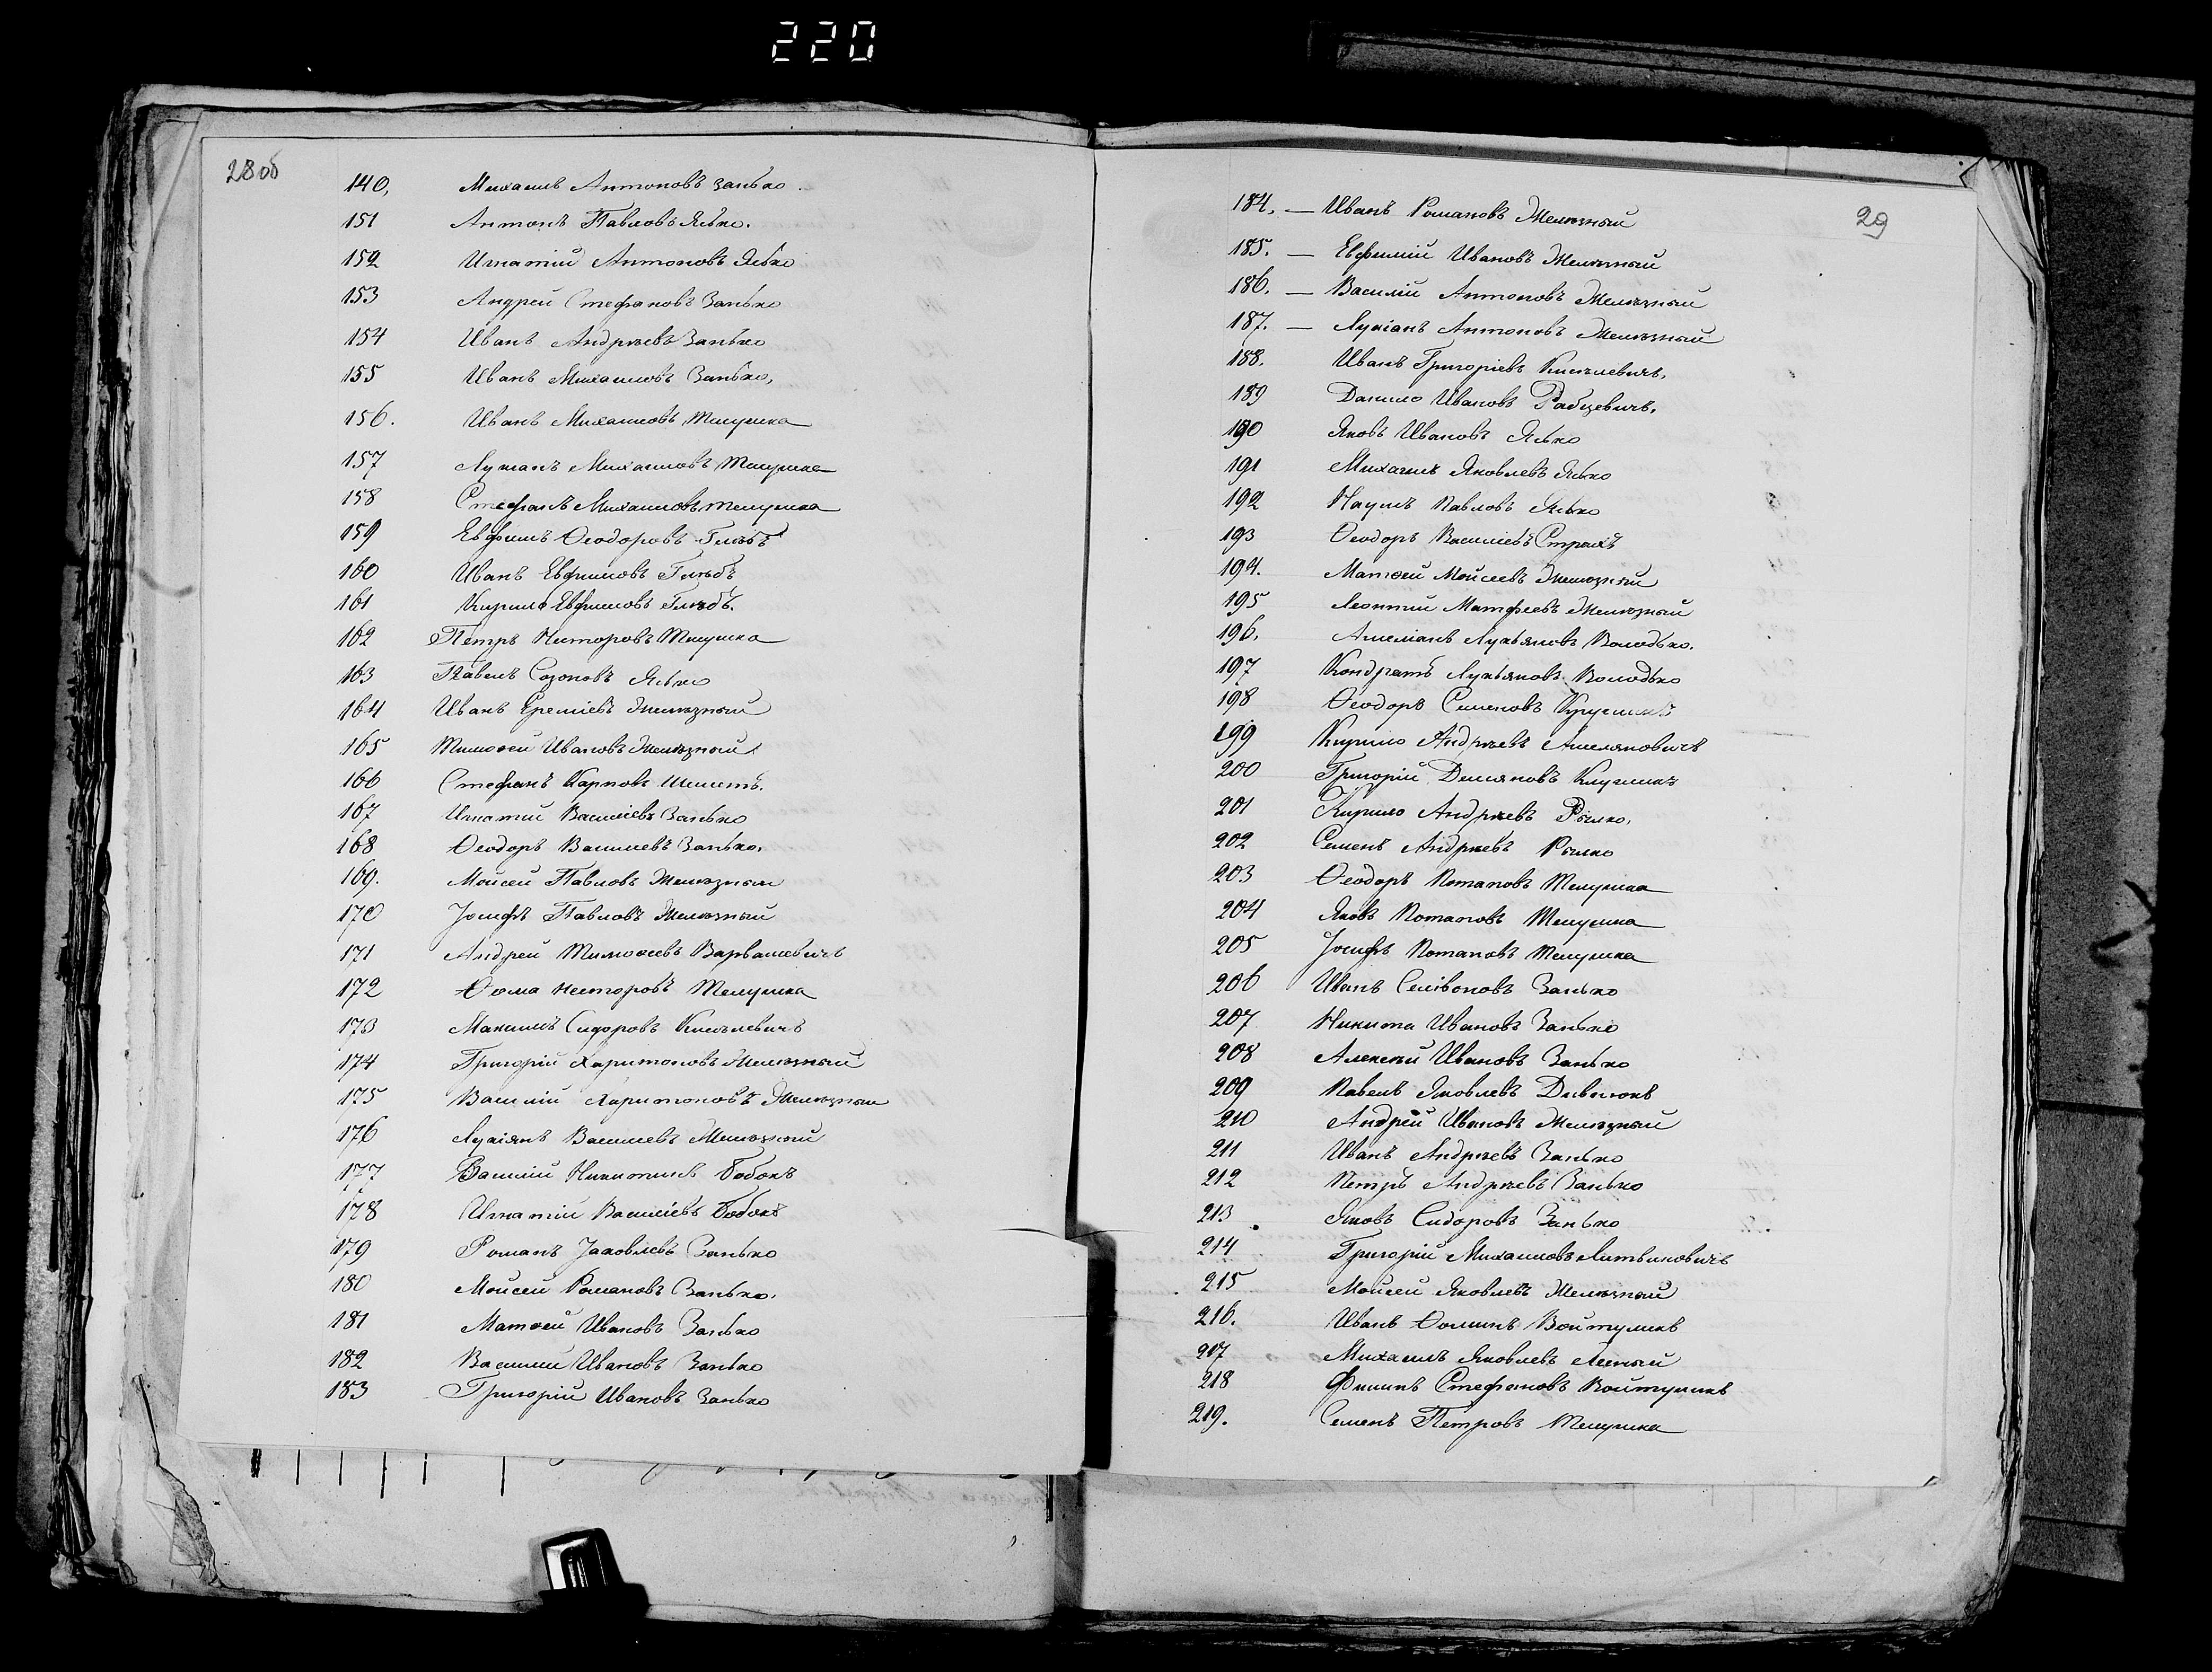 220
28 об
140, Михаилъ Антоновъ Занько.
151 Антонъ Павловъ Ясько.
152 Игнатій Антоновъ Ясько
153 Андрей Стефановъ Занько
154 Иванъ Андрѣевъ Занько
155 Иванъ Михаиловъ Занько,
156. Иванъ Михаиловъ Телушка
157 Лукіанъ Михаиловъ Телушка
158 Стефанъ Михаиловъ Телушка
159 Евфимъ Ѳеодоровъ Глѣбъ
160 Иванъ Евфимовъ Глѣбъ
161 Кирило Евфимовъ Глѣбъ.
162 Петръ Несторовъ Телушка
163 Павелъ Созоновъ Ясько
164 Иванъ Еремѣевъ Желѣзный
165 Тимоѳей Ивановъ Желѣзный
166 Стефанъ Карповъ Шеметъ.
167 Игнатій Василіевъ Занько
168 Ѳеодоръ Василіевъ Занько.
169. Мойсей Павловъ Желѣзный
170 Іосифъ Павловъ Желѣзный
171 Андрей Тимоѳеевъ Варвашевичъ
172 Ѳома Несторовъ Телушка
173 Максимъ Сидоровъ Кисълевичъ
174 Григорій Харитоновъ Желѣзный
175 Василій Харитоновъ Желѣзный
176 Лукіянъ Василіевъ Желѣзный
177 Василій Никитинъ Бобокъ
178 Игнатій Василіевъ Бобокъ
179 Романъ Іаковлевъ Занько
180 Мойсей Романовъ Занько.
181 Матѳей Ивановъ Занько
182 Василій Ивановъ Занько
183 Григорій Ивановъ Занько
29
184. — Иванъ Романовъ Желѣзный
185. — Евфимій Ивановъ Желѣзный
186. — Василій Антоновъ Желѣзный
187. — Лукіанъ Антоновъ Желѣзный
188. Иванъ Григоріевъ Кисълевичъ.
189 Данило Ивановъ Рабцевичъ.
190 Яковъ Ивановъ Ясько
191 Михаилъ Яковлевъ Ясько
192 Наумъ Павловъ Ясько
193 Ѳеодоръ Василіевъ Страхъ
194. Матѳей Мойсеевъ Желѣзный
195 Леонтій Матфеевъ Желѣзный
196. Амеліанъ Лукьяновъ Володько.
197 Кондратъ Лукьяновъ Володько
198 Ѳеодоръ Семеновъ
199 Кирило Андрѣевъ Амеляновичъ
200 Григорій Демяновъ
201 Кирило Андрѣевъ Рылко.
202 Семенъ Андрѣевъ Рылко
203 Ѳеодоръ Потаповъ Телушка
204 Яковъ Потаповъ Телушка
205 Іосифъ Потаповъ Телушка
206 Иванъ Селівоновъ Занько
207 Никита Ивановъ Занько
208 Алексѣй Ивановъ Занько
209 Павелъ Яковлевъ Дивнюкъ
210 Андрей Ивановъ Желѣзный
211 Иванъ Андрѣевъ Занько
212 Петръ Андрѣевъ Занько
213 Яковъ Сидоровъ Занько
214 Григорій Михаиловъ Литвиновичъ
215 Мойсей Яковлевъ Желѣзный
216. Иванъ Ѳоминъ Войтуликъ
217 Михаилъ Яковлевъ Лесный
218 Филипъ Стефановъ Войтуликъ
219. Семенъ Петровъ Телушка